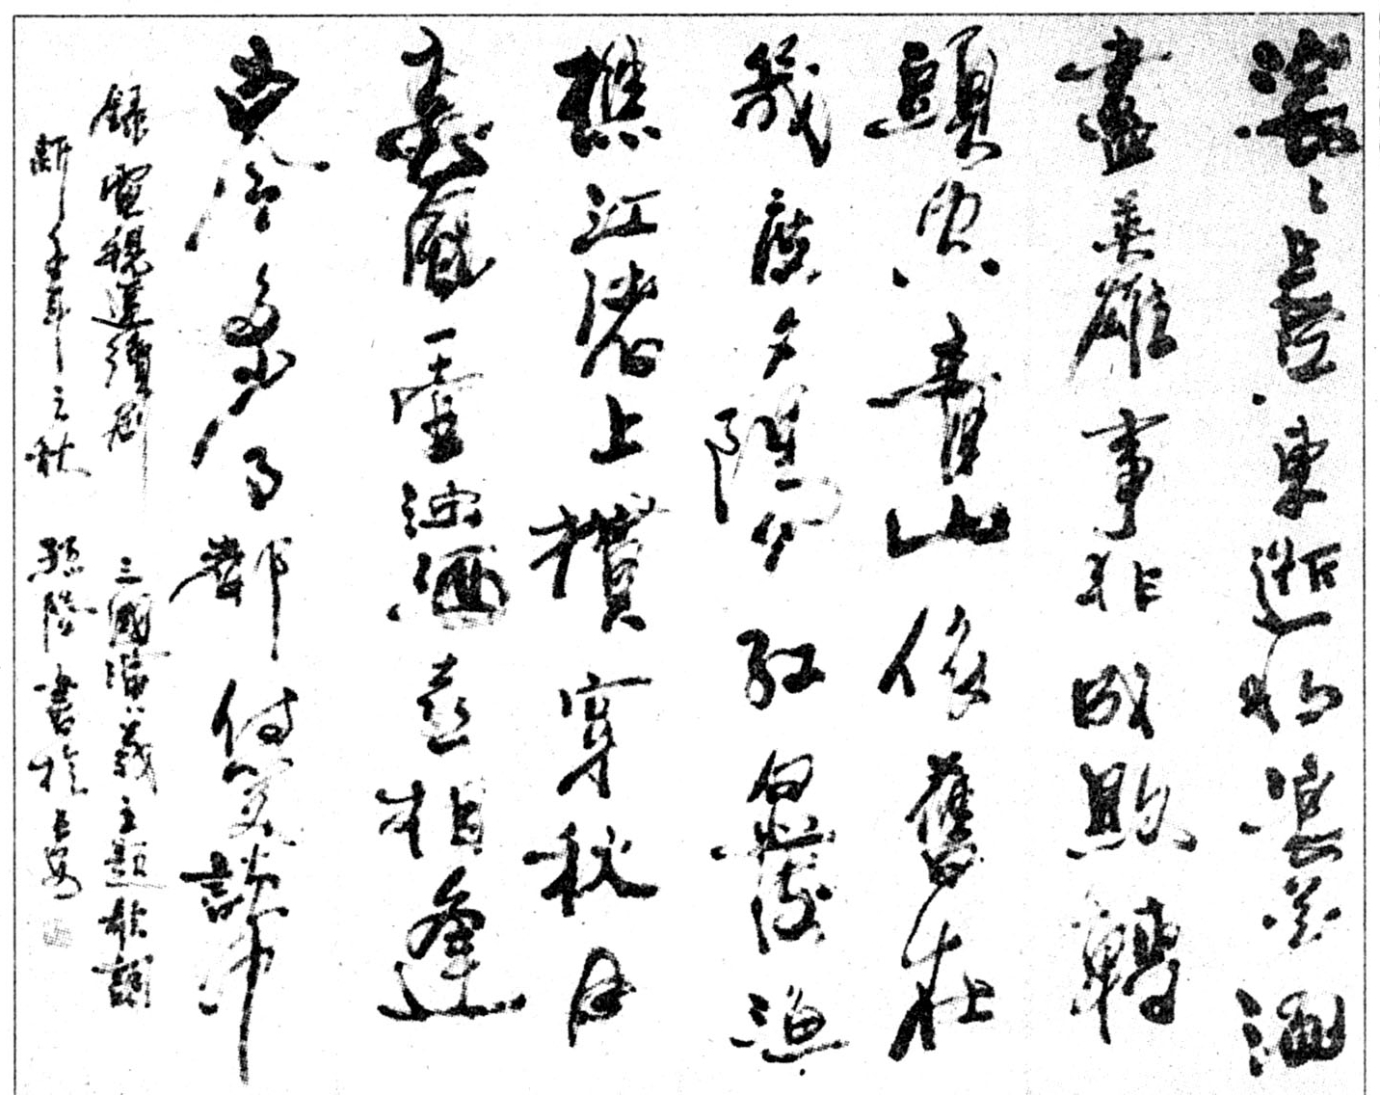 滾〻長江東逝水浪花淘
盡英雄事非成敗轉
頭空青山依舊在
幾度夕陽紅白髮漁
樵江渚上慣看秋月
春風一壺濁酒喜相逢
古今多少事都付笑談中
錄電視連續劇三國演義主題歌詞
新千年之秋書於長安